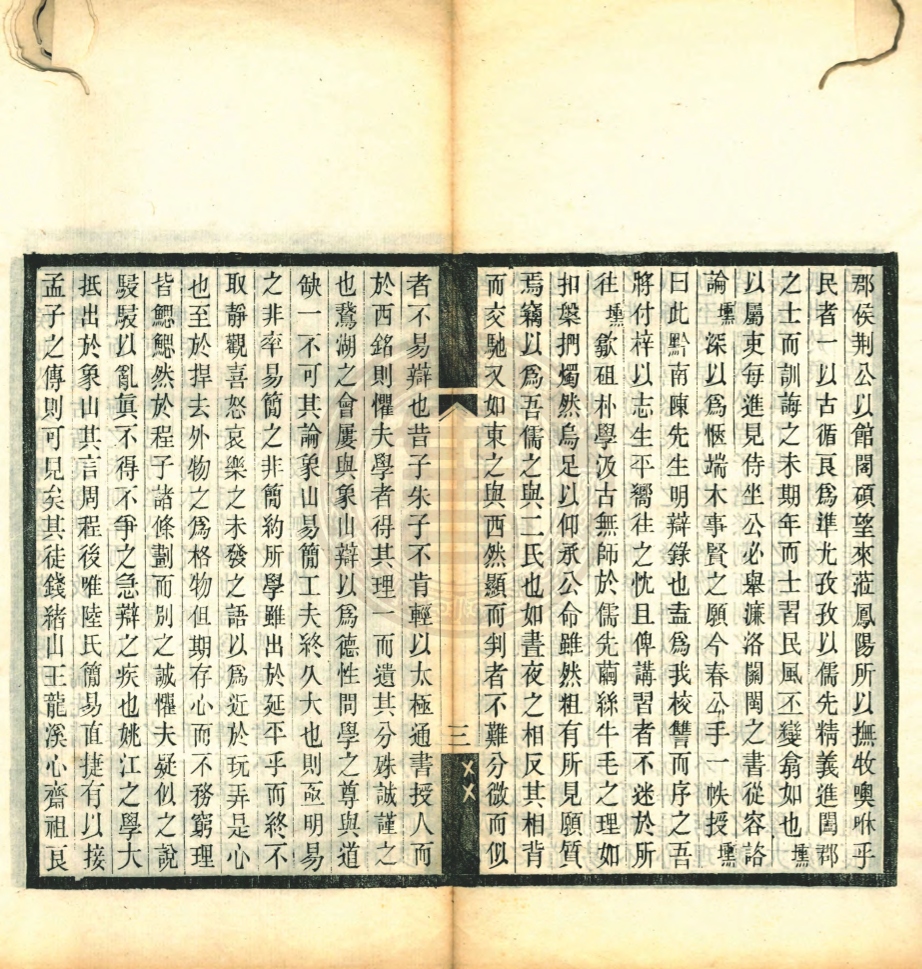 郡侯荆公以館閣碩望來蒞鳳陽所以撫牧噢咻乎
民者一以古循良爲準尤孜孜以儒先精義進闔郡
之士而訓誨之未期年而士習民風丕變翕如也壎
以屬吏每進見侍坐公必舉濂洛關閩之書從容諮
論壎深以爲愜端木事賢之願今春公手一帙授壎
曰此黔南陳先生明辯錄也盍爲我校讐而序之吾
將付梓以志生平嚮往之忱且俾講習者不迷於所
往壎歙砠朴學汲古無師於儒先繭絲牛毛之理如
扣槃捫燭然烏足以仰承公命雖然粗有所見願質
焉竊以爲吾儒之與二氏也如晝夜之相反其相背
而交馳又如東之與西然顯而判者不難分微而似
三
者不易辯也昔子朱子不肯輕以太極通書授人而
於西銘則懼夫學者得其理一而遺其分殊誠謹之
也鵞湖之會屢與象山辯以爲德性問學之尊與道
缺一不可其論象山易簡工夫終久大也則亟明易
之非率易簡之非簡約所學雖出於延平乎而終不
取靜觀喜怒哀樂之未發之語以爲近於玩弄是心
也至於捍去外物之爲格物但期存心而不務窮理
皆鰓鰓然於程子諸條劃而別之誠懼夫疑似之說
駸駸以亂眞不得不爭之急辯之疾也姚江之學大
抵出於象山其言周程後唯陸氏簡易直捷有以接
孟子之傳則可見矣其徒錢緒山王龍溪心齋祖良